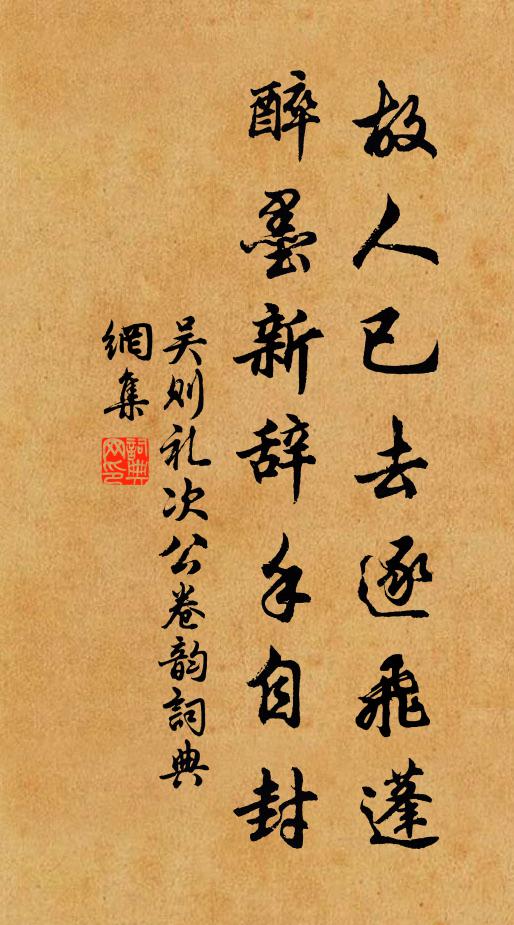 故人已去逐飛蓬
醉墨新辞手自封
吴则礼次公卷韵詞典
網集
詞典网印